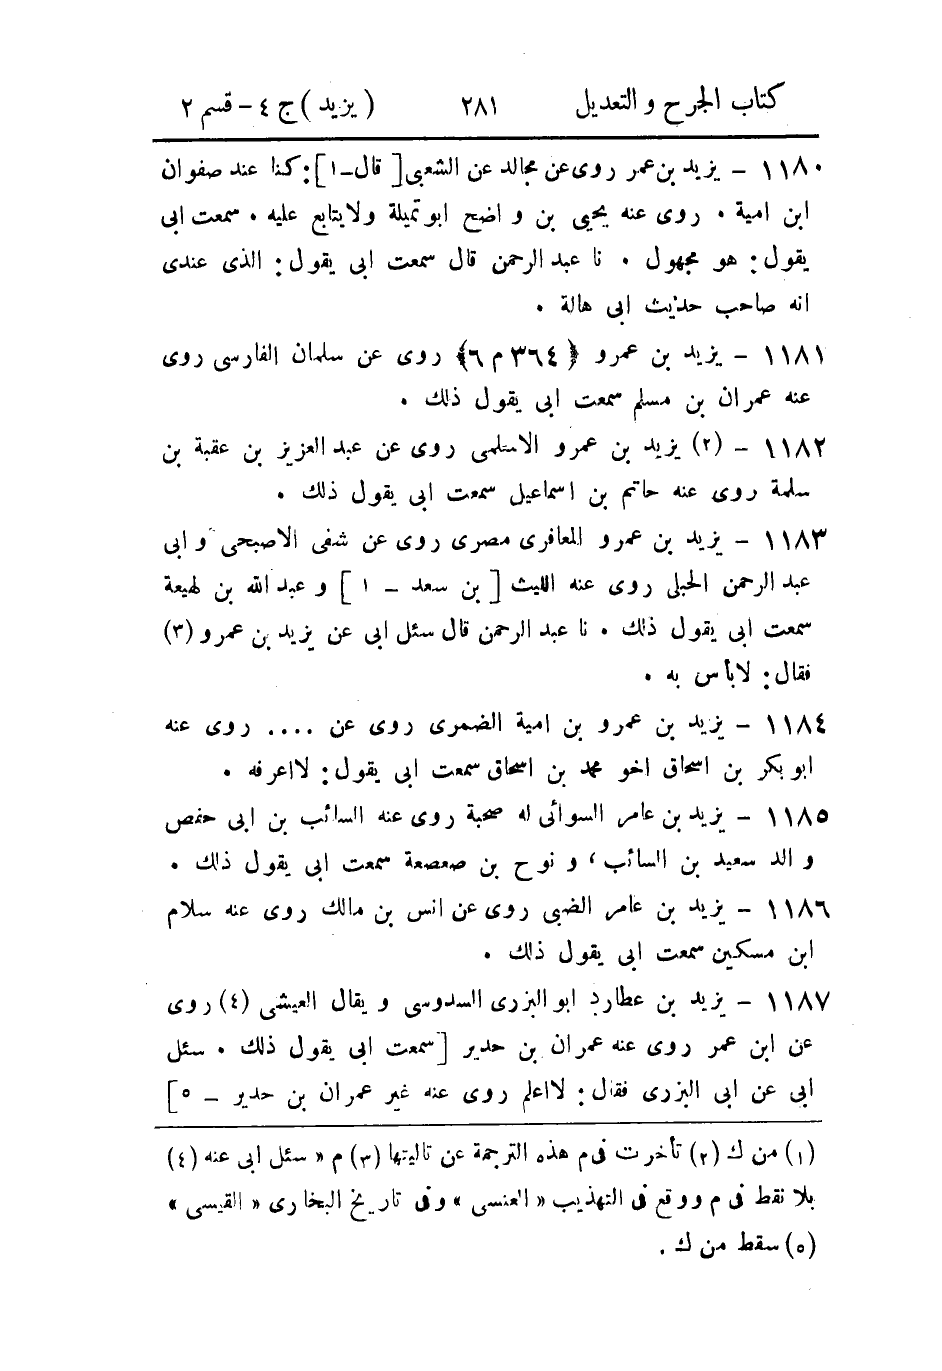 كتاب الجرح و التعديل ٢٨١ (يزيد) ج ٤ - قسم ٢
١١٨٠ - يزيد بن عمر روى عن مجالد عن الشعبى [قال - ١]: كنا عند صفوان
ابن امية . روى عنه يحيى بن واضح ابو تميلة ولا يتابع عليه . سمعت ابى
يقول: هو مجهول . نا عبد الرحمن قال سمعت ابى يقول: الذى عندى
انه صاحب حديث ابى هالة .
١١٨١ - يزيد بن عمرو {٣٦٤ م ٦} روى عن سلمان الفارسى روى
عنه عمران بن مسلم سمعت ابى يقول ذلك .
١١٨٢ - (٢) يزيد بن عمرو الاسلمى روى عن عبد العزيز بن عقبة بن
سلمة روى عنه حاتم بن اسماعيل سمعت ابى يقول ذلك .
١١٨٣ - يزيد بن عمرو المعافرى مصرى روى عن شفى الاصبحى و ابى
عبد الرحمن الحبلى روى عنه الليث [بن سعد - ١] و عبد الله بن لهيعة
سمعت ابى يقول ذلك . نا عبد الرحمن قال سئل ابى عن يزيد بن عمرو (٣)
فقال: لا بأس به .
١١٨٤ - يزيد بن عمرو بن امية الضمرى روى عن .... روى عنه
ابو بكر بن اسحاق اخو محمد بن اسحاق سمعت ابى يقول: لا اعرفه .
١١٨٥ - يزيد بن عامر السوائى له صحبة روى عنه السائب بن ابى حفص
و الد سعيد بن السائب، و نوح بن صعصعة سمعت ابى يقول ذلك .
١١٨٦ - يزيد بن عامر الضبى روى عن انس بن مالك روى عنه سلام
ابن مسكين سمعت ابى يقول ذلك .
١١٨٧ - يزيد بن عطارد ابو البزرى السدوسى و يقال العيشى (٤) روى
عن ابن عمر روى عنه عمران بن حدير [سمعت ابى يقول ذلك . سئل
ابى عن ابى البزرى فقال: لا اعلم روى عنه غير عمران بن حدير - ٥]
(١) من ك (٢) تأخرت فى م هذه الترجمة عن تاليتها (٣) م « سئل ابى عنه (٤)
بلا نقط فى م ووقع فى التهذيب « العنسى » وفى تاريخ البخارى « القيسى »
(٥) سقط من ك .